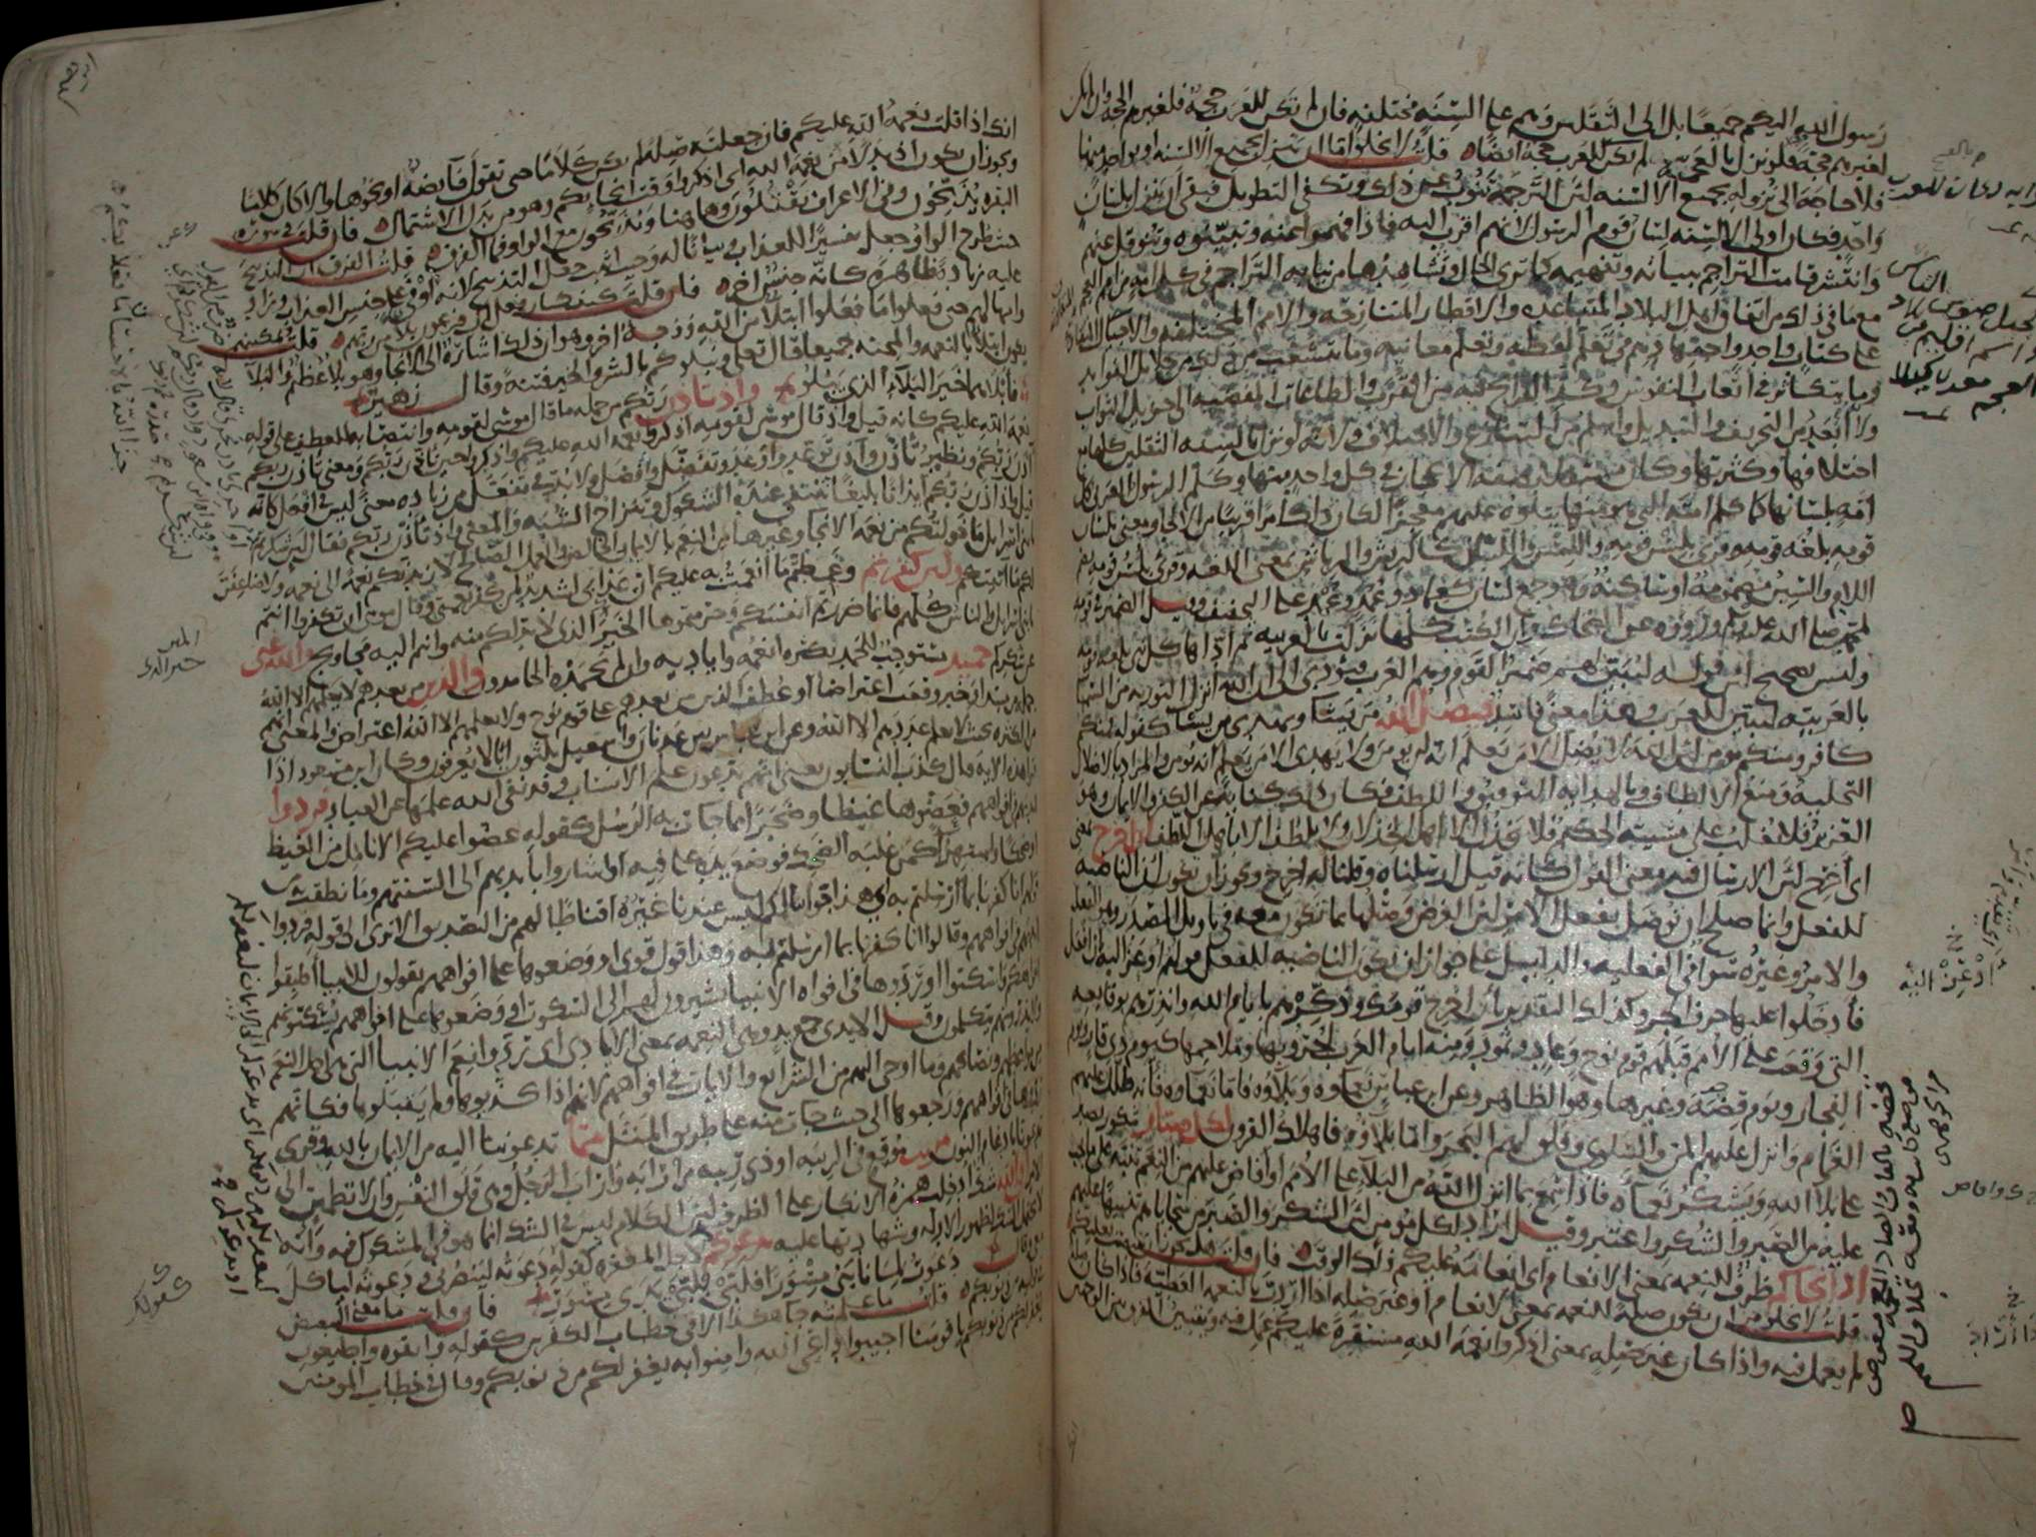 رسول الله اليكم جميعا بل الى الثقلين وهم على السنة مختلفة فان لم تكن للعرب حجة فلغيرهم الحجة وان لم تكن
لغيرهم حجة فلو نزل بالعجمية لم تكن للعرب حجة ايضا قلت لا يخلو اما ان ينزل بجميع الالسنة او بواحد منها
فلا حاجة الى نزوله بجميع الالسنة لان الترجمة تنوب عن ذلك وتكفى التطويل فبقى ان ينزل بلسان
واحد فكان اولى الالسنة لسان قوم الرسول لانهم اقرب اليه فاذا فهموا عنه وتبينوه وتنوقل عنهم
وانتشر قامت التراجم ببيانه وتفهيمه كما ترى الحال وتشاهدها من نيابة التراجم فى كل امة من امم العجم
مع ما فى ذلك من اتفاق اهل البلاد المتباعدة والاقطار المتنازحة والامم المختلفة والاجيال المتفاوتة
على كتاب واحد واجتهادهم فى تعلم لفظه وتعلم معانيه وما يتشعب من ذلك من جلائل الفوايد
وما يتكاثر فى اتعاب النفوس وكد القرائح فيه من القرب والطاعات المفضية الى جزيل الثواب
ولانه ابعد من التحريف والتبديل واسلم من التنازع والاختلاف ولانه لو نزل بالسنة الثقلين كلها مع
اختلافها وكثرتها وكان مستقلا بصفة الاعجاز فى كل واحد منها وكلم الرسول العربى كل
امة بلسانها كما كلم امته التى هو منها يتلوه عليهم معجزا لكان ذلك امرا قريبا من الالجاء ومعنى بلسان
قومه بلغة قومه وقرئ بلسن قومه واللسن واللسان كالريش والرياش بمعنى اللغة وقرئ بلسن قومه بضم
اللام والسين مضمومة او ساكنة وهو جمع لسان كعماد وعمد وعمد على التخفيف وقيل الضمير فى قومه
لمحمد صلى الله عليه وسلم ورووه عن الضحاك وان الكتب كلها نزلت بالعربية ثم اداها كل نبى بلغة قومه
وليس بصحيح لان قوله ليبين لهم ضمير القوم وهم العرب فيؤدى الى ان الله انزل التورية من السماء
بالعربية ليبين للعرب وهذا معنى فاسد فيضل الله من يشاء ويهدى من يشاء كقوله فمنكم
كافر ومنكم مؤمن لان الله لا يضل الا من يعلم انه لن يؤمن ولا يهدى الا من يعلم انه يؤمن والمراد بالاضلال
التخلية ومنع الالطاف وبالهداية التوفيق واللطف فكان ذلك كناية عن الكفر والايمان وهو
العزيز فلا يغلب على مشيته الحكيم فلا يخذل الا اهل الخذلان ولا يلطف الا باهل اللطف ان اخرج بمعنى
اى اخرج لان الارسال فيه معنى القول كانه قيل ارسلناه وقلنا له اخرج ويجوز ان تكون ان الناصبة
للفعل وانما صلح ان توصل بفعل الامر لان الغرض وصلها بما تكون معه فى تاويل المصدر وهو الفعل
والامر وغيره سواء فى الفعلية والدليل على جواز ان تكون الناصبة للفعل قولهم اوعز اليه بان افعل
فادخلوا عليها حرف الجر وكذلك التقدير بان اخرج قومك وذكرهم بايام الله وانذرهم بوقايعه
التى وقعت على الامم قبلهم قوم نوح وعاد وثمود ومنه ايام العرب لحروبها وملاحمها كيوم ذى قار ويوم
الفجار ويوم قضة وغيرها وهو الظاهر وعن ابن عباس نعماؤه وبلاؤه فاما نعماؤه فانه ظلل عليهم
الغمام وانزل عليهم المن والسلوى وفلق لهم البحر واما بلاؤه فاهلاك القرون لكل صبار شكور يصبر
على بلاء الله ويشكر نعماه فاذا سمع بما انزل الله من البلاء على الامم او افاض عليهم من النعم تنبه على ما يجب
عليه من الصبر والشكر واعتبر وقيل اراد لكل مؤمن لان الشكر والصبر من سجاياهم تنبيها عليهم
اذ انجاكم ظرف للنعمة بمعنى الانعام اى انعامه عليكم ذلك الوقت فان قلت هل يجوز ان ينتصب بعليكم
قلت لا يخلو من ان يكون صلة للنعمة بمعنى الانعام او غير صلة اذا اردت بالنعمة العطية فاذا كان صلة
لم يعمل فيه واذا كان غير صلة بمعنى اذكروا نعمة الله مستقرة عليكم عمل فيه ويتبين الفرق بين الوجهين
انك اذا قلت نعمة الله عليكم فان جعلته صلة لم يكن كلاما حتى تقول فايضة او نحوها والا كان كلاما
ويجوز ان يكون اذ بدلا من نعمة الله اى اذكروا وقت انجائكم وهو من بدل الاشتمال فان قلت فى سورة
البقرة يذبحون وفى الاعراف يقتلون وها هنا ويذبحون مع الواو فما الفرق قلت الفرق ان التذبيح
حيث طرح الواو جعل تفسيرا للعذاب وبيانا له وحيث اثبت جعل التذبيح لانه اوفى على جنس العذاب وزاد
عليه زيادة ظاهرة كانه جنس اخر فان قلت كيف كان فعل ال فرعون بلاء من ربهم قلت تمكينهم
وامهالهم حتى فعلوا ما فعلوا ابتلاء من الله ووجه اخر وهو ان ذلك اشارة الى الانجاء وهو بلاء عظيم والبلاء
يكون ابتلاء بالنعمة والمحنة جميعا قال تعالى ونبلوكم بالشر والخير فتنة وقال زهير
فابلاهما خير البلاء الذى يبلو واذ تاذن ربكم من جملة ما قال موسى لقومه وانتصابه للعطف على قوله
نعمة الله عليكم كانه قيل واذ قال موسى لقومه اذكروا نعمة الله عليكم واذكروا حين تاذن ربكم ومعنى تاذن ربكم
اذن ربكم ونظير تاذن واذن توعد واوعد وتفضل وافضل ولا بد فى تفعل من زيادة معنى ليس فى افعل كانه
قيل واذ اذن ربكم ايذانا بليغا تنتفى عنده الشكوك وتنزاح الشبه والمعنى واذ تاذن ربكم فقال لئن شكرتم
يا بنى اسرائيل ما خولتكم من نعمة الانجاء وغيرها من النعم بالايمان الخالص والعمل الصالح لازيدنكم نعمة الى نعمة ولاضاعفن
لكم ما اتيتكم ولئن كفرتم وغمطتم ما انعمت به عليكم ان عذابى لشديد لمن كفر نعمتى وقال موسى ان تكفروا انتم
يا بنى اسرائيل والناس كلهم فانما ضررتم انفسكم وحرمتموها الخير الذى لا بد لكم منه وانتم اليه محاويج والله غنى
عن شكركم حميد مستوجب للحمد بكثرة انعمه واياديه وان لم يحمده الحامدون والذين من بعدهم لا يعلمهم الا الله
جملة من مبتدا وخبر وقعت اعتراضا او عطف الذين من بعدهم على قوم نوح ولا يعلمهم الا الله اعتراض والمعنى انهم
من الكثرة بحيث لا يعلم عددهم الا الله وعن ابن عباس بين عدنان واسمعيل ثلثون ابا لا يعرفون وكان ابن مسعود اذا
قرا هذه الاية قال كذب النسابون يعنى انهم يدعون علم الانساب وقد نفى الله علمها عن العباد فردوا
ايديهم فى افواههم فعضوها غيظا وضجرا مما جات به الرسل كقوله عضوا عليكم الانامل من الغيظ
او ضحكا واستهزاء كمن غلبه الضحك فوضع يده على فيه او اشاروا بايديهم الى السنتهم وما نطقت به من
قولهم انا كفرنا بما ارسلتم به اى هذا جوابنا لكم ليس عندنا غيره اقناطا لهم من التصديق الا ترى الى قوله فردوا
ايديهم فى افواههم وقالوا انا كفرنا بما ارسلتم به وهذا قول قوى او وضعوها على افواههم يقولون للانبياء اطبقوا
افواهكم واسكتوا او ردوها فى افواه الانبياء يشيرون لهم الى السكوت او وضعوها على افواههم يسكتونهم
ولا يذرونهم يتكلمون وقيل الايدى جمع يد وهى النعمة بمعنى الايادى اى ردوا نعم الانبياء التى هى اجل النعم
من مواعظهم ونصايحهم وما اوحى اليهم من الشرايع والايات فى افواههم لانهم اذا كذبوها ولم يقبلوها فكانهم
ردوها فى افواههم ورجعوها الى حيث جات منه على طريق المثل مما تدعوننا اليه من الايمان بالله وقرئ
تدعونا بادغام النون مريب موقع فى الريبة او ذى ريبة من ارابه واراب الرجل وهى قلق النفس وان لا تطمئن الى
الامر افى الله شك ادخلت همزة الانكار على الظرف لان الكلام ليس فى الشك انما هو فى المشكوك فيه وانه
لا يحتمل الشك لظهور الادلة وشهادتها عليه يدعوكم لاجل المغفرة كقوله دعوته لينصرنى ودعوته لياكل
معى وقال دعوت لما نابنى مسورا فلبى فلبى يدى مسور فان قلت ما معنى التبعيض
فى قوله من ذنوبكم قلت ما علمته جاء هكذا الا فى خطاب الكفرين كقوله واتقوه واطيعون
يغفر لكم من ذنوبكم يا قومنا اجيبوا داعى الله وامنوا به يغفر لكم من ذنوبكم وقال فى خطاب المؤمنين